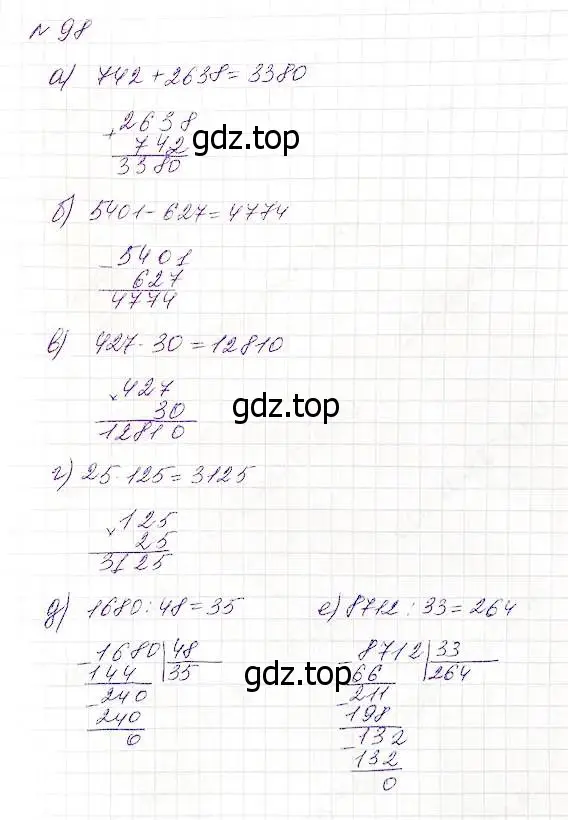 № 98
а) 742 + 2638 = 3380
+ 2638
742
3380
gdz.top
б) 5401 - 627 = 4774
- 5401
627
4774
в) 427 · 30 = 12810
× 427
30
12810
gdz.top
г) 25 · 125 = 3125
× 125
25
3125
д) 1680 : 48 = 35
- 1680 | 48
144 | 35
- 240
240
0
е) 8712 : 33 = 264
- 8712 | 33
66 | 264
- 211
198
- 132
132
0
gdz.top